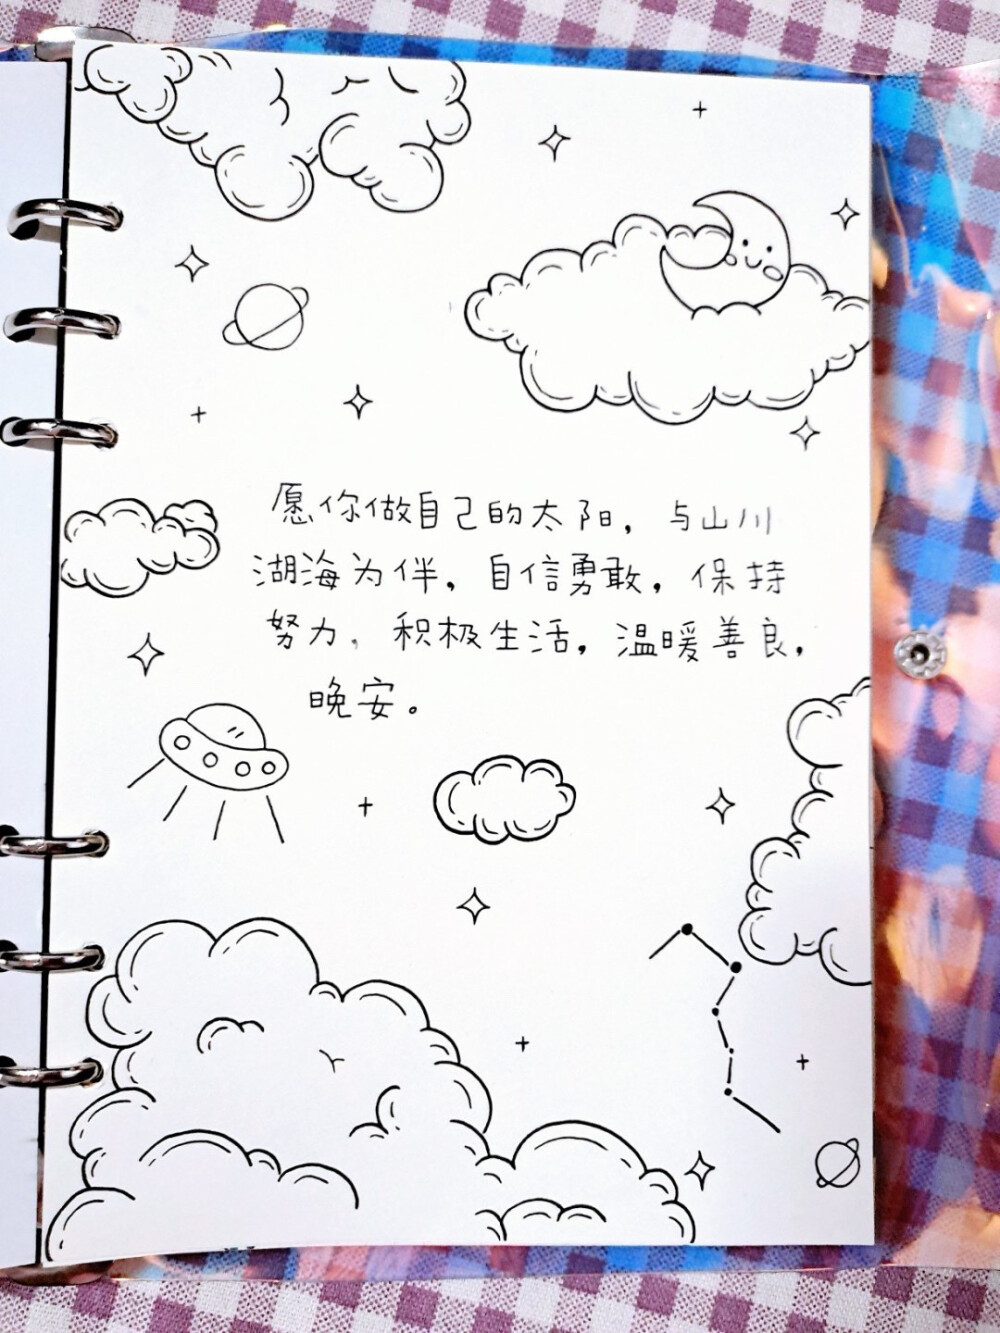 愿你做自己的太阳，与山川
湖海为伴，自信勇敢，保持
努力，积极生活，温暖善良，
晚安。